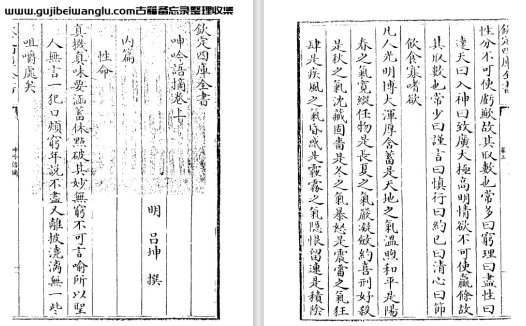 www.gujibeiwanglu.com古籍备忘录整理收集
欽定四庫全書
呻吟語摘卷上
明 呂坤 撰
內篇
性命
真機真味要涵蓄休點破其妙無窮不可言喻所以聖
人無言一犯口頰窮年説不盡又離披澆漓無一些
咀嚼處矣
欽定四庫全書
性分不可使虧歉故其取數也常多曰窮理曰盡性曰
達天曰入神曰致廣大極高明情欲不可使贏餘故
其取數也常少曰謹言曰慎行曰約已曰清心曰節
飲食寡嗜欲
凡人光明博大渾厚含蓄是天地之氣溫煦和平是陽
春之氣寬縱任物是長夏之氣嚴凝斂約喜刑好殺
是秋之氣沈藏固嗇是冬之氣暴怒是震雷之氣狂
肆是疾風之氣昏惑是霾霧之氣隱恨留連是積陰